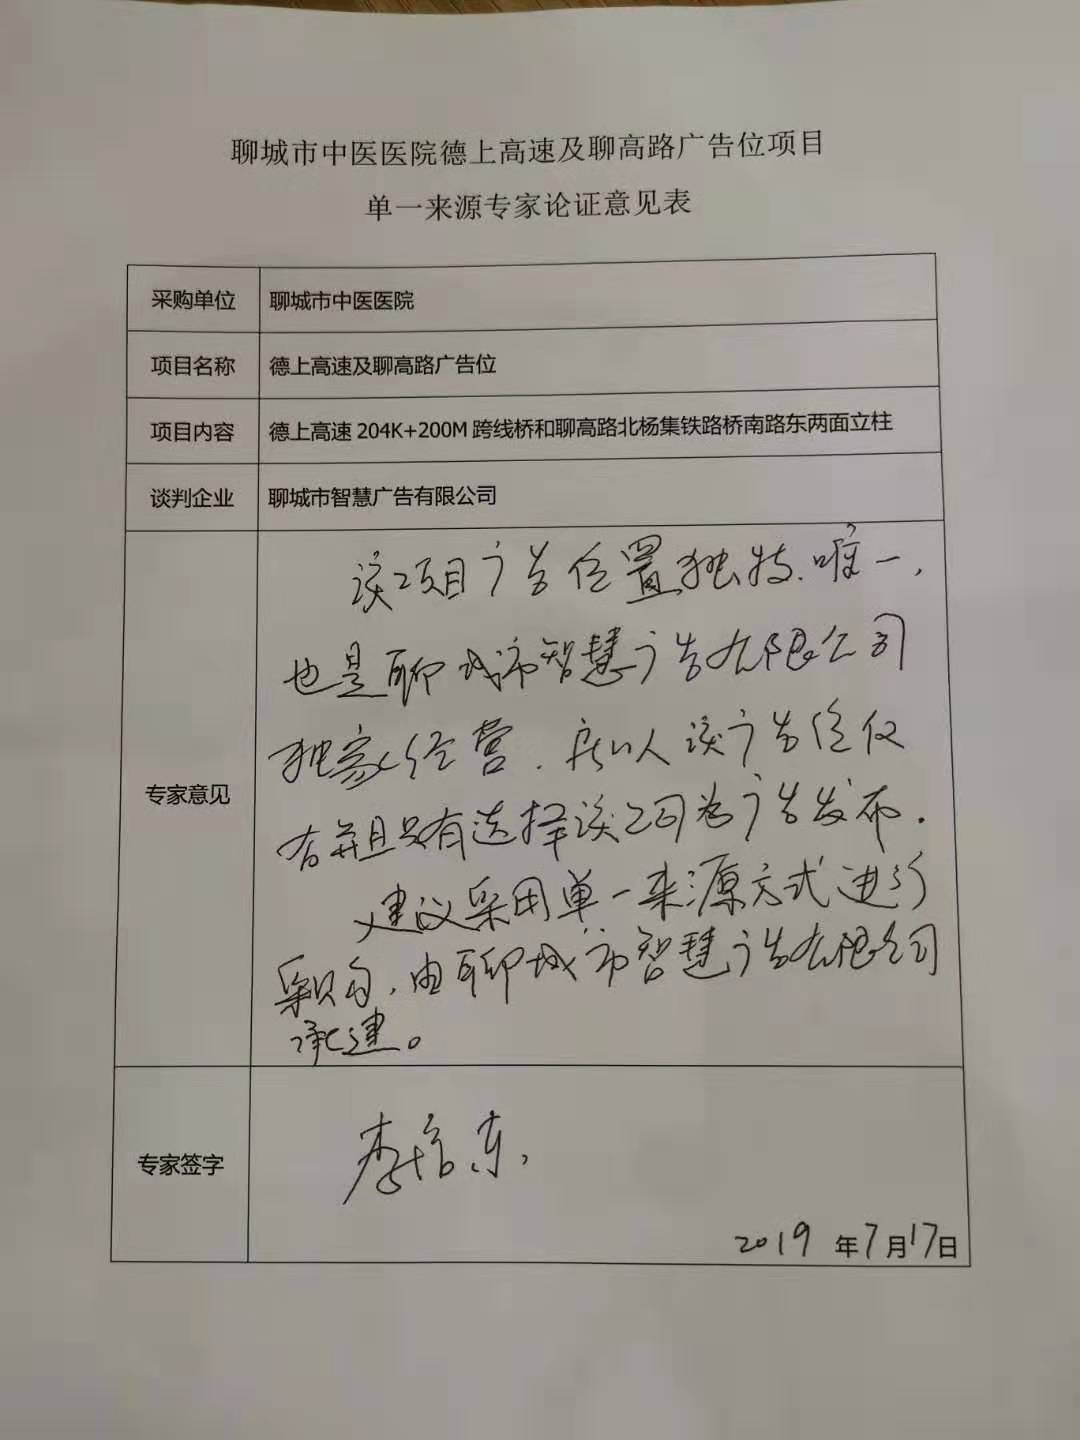 聊城市中医医院德上高速及聊高路广告位项目
单一来源专家论证意见表
采购单位 聊城市中医医院
项目名称 德上高速及聊高路广告位
项目内容 德上高速204K+200M跨线桥和聊高路北杨集铁路桥南路东两面立柱
谈判企业 聊城市智慧广告有限公司
专家意见
该项目广告位置独特、唯一，
也是聊城市智慧广告有限公司
独家经营，所以该广告位仅
有并且只有选择该公司为广告发布．
建议采用单一来源方式进行
采购，由聊城市智慧广告有限公司
承建。
专家签字
李 东
2019年7月17日